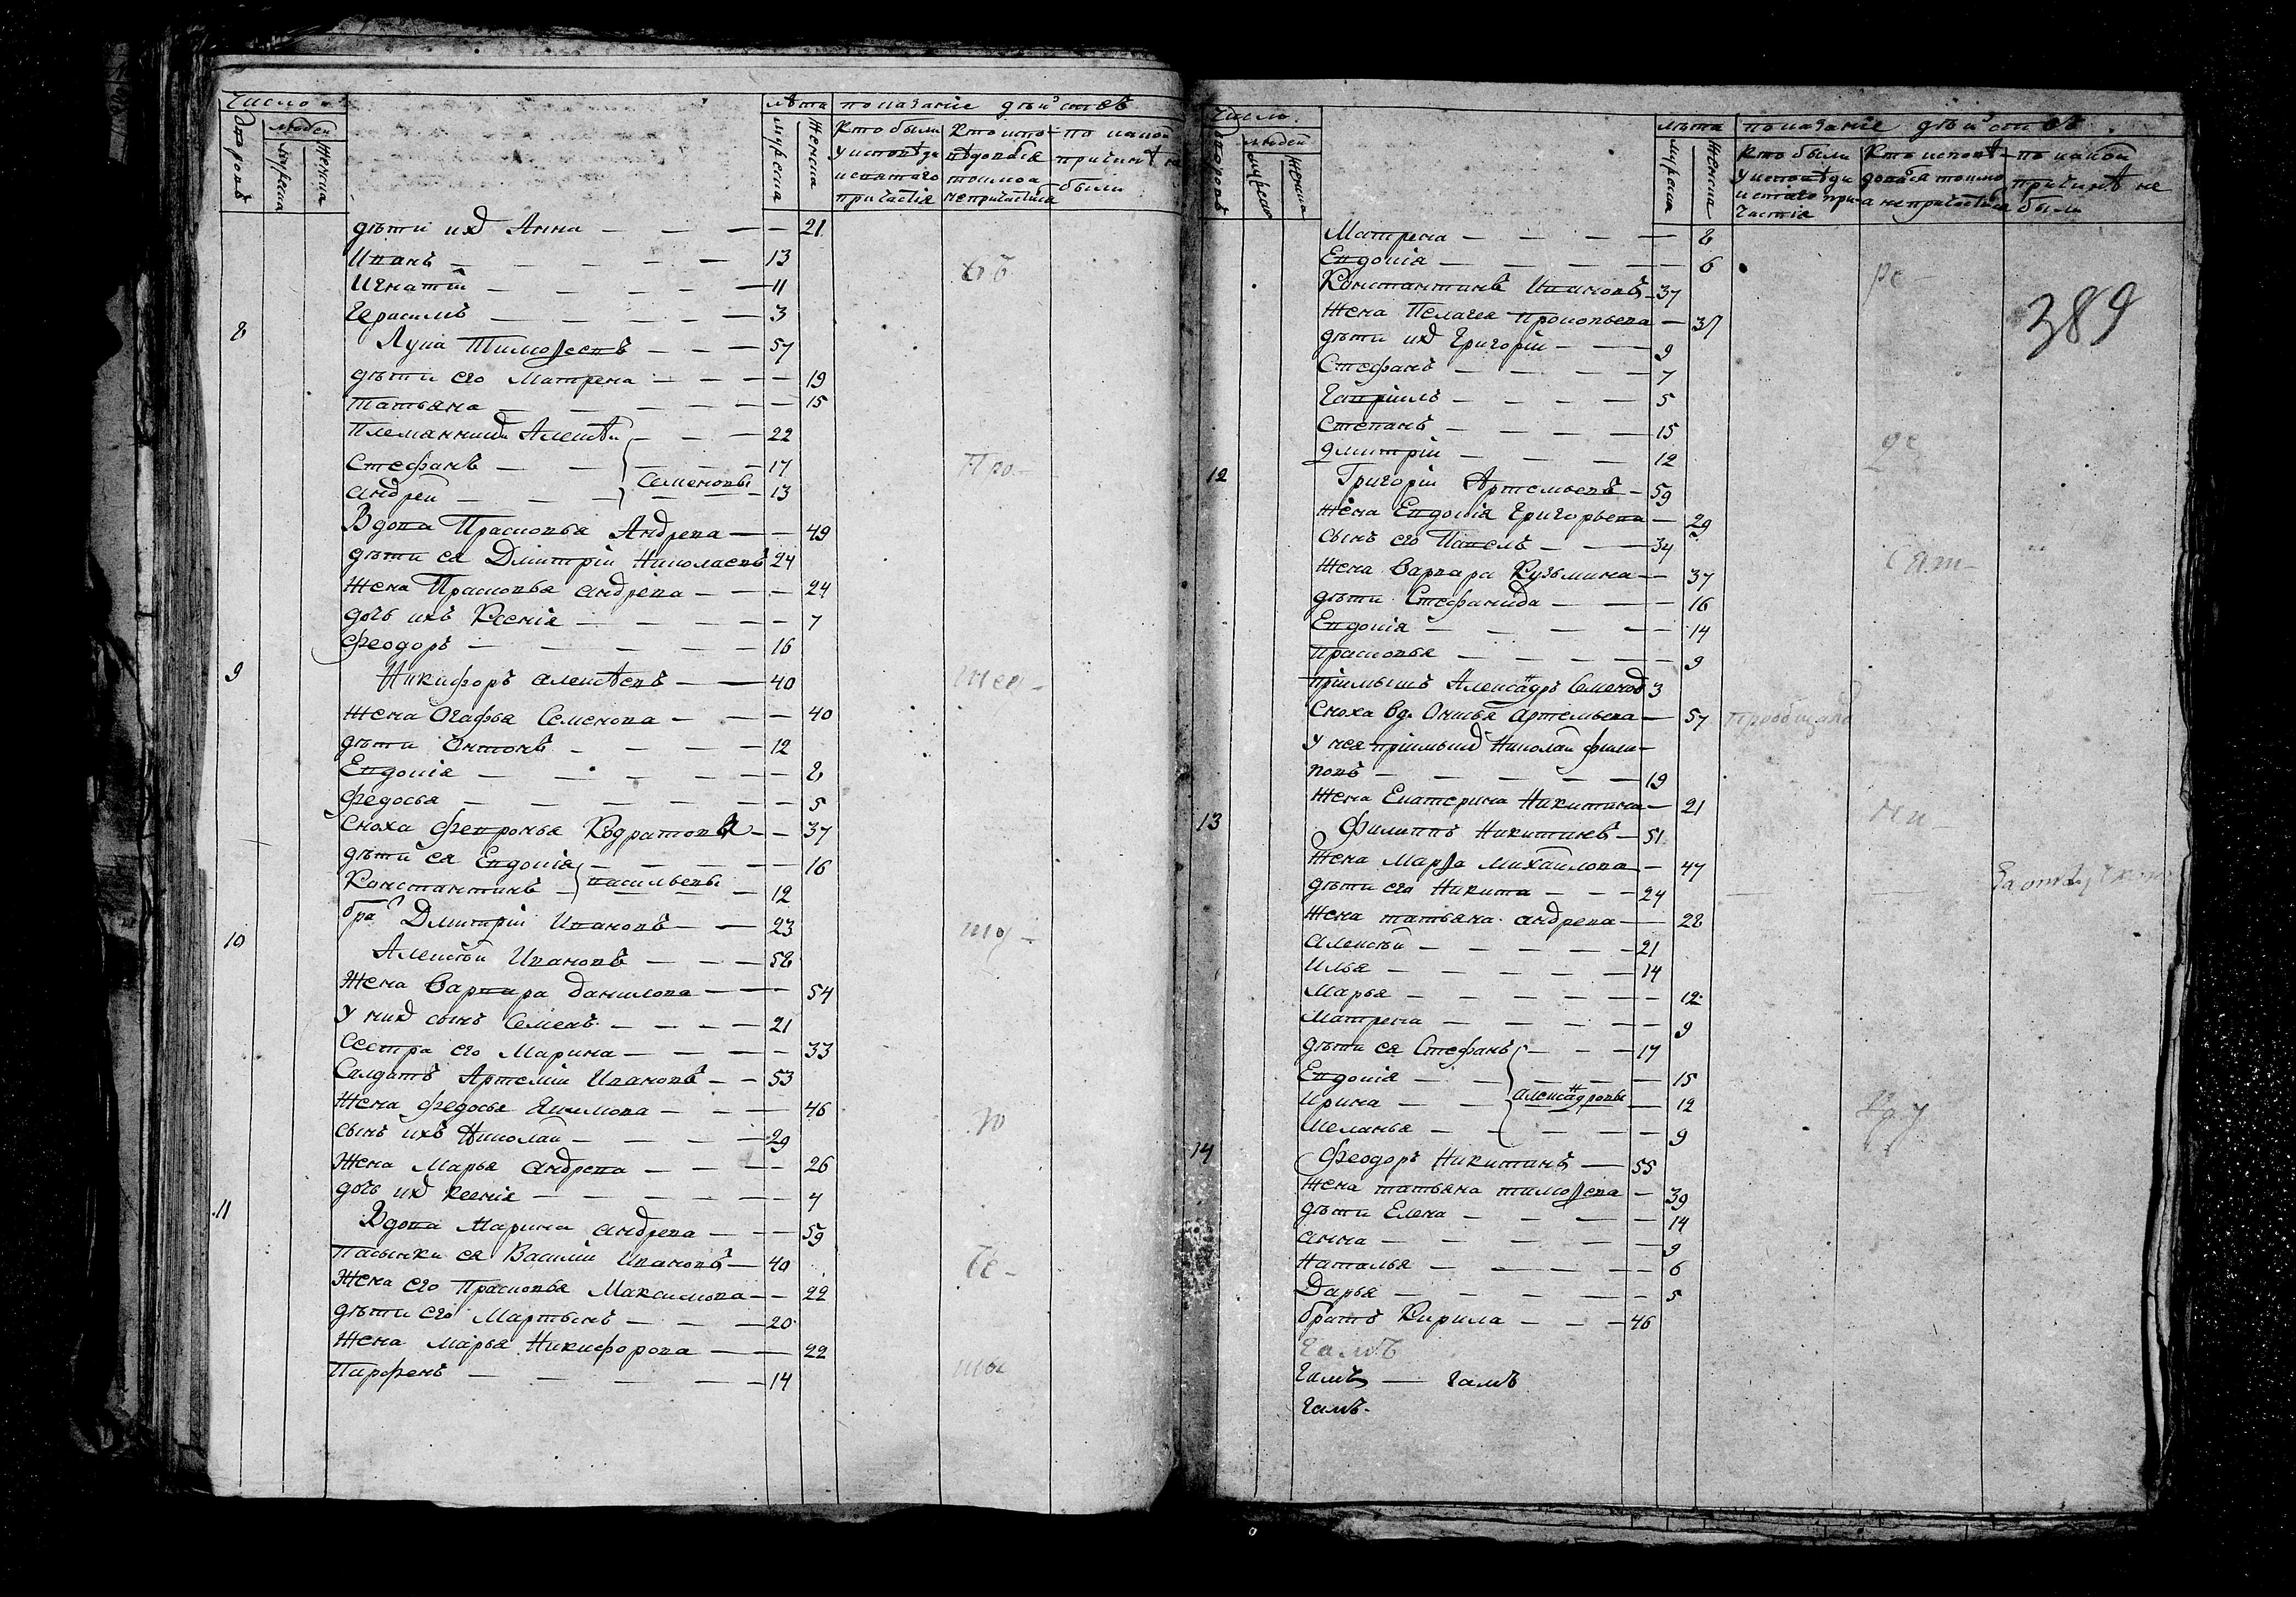 Число
людей
Дворовъ
мужеска
женска
лѣта
мужеска
женска
показанiе дѣйствъ
Кто были у исповѣди и святаго причастiя
Кто исповѣдовался токмо а не причастился
по какой причинѣ не были
дѣти ихъ Анна — — — 21
Иванъ — — — 13
Игнатiй — — — 11
Герасимъ — — — 3
8 Лука Тимоѳеевъ — — 57
дѣти его Матрена — — — 19
Татьяна — — — 15
Племянники Алексѣй — — 22
Стефанъ — — 17
Семеновы
Андрей — — 13
Вдова Прасковья Андрева — — 49
дѣти ея Димитрiй Николаевъ 24
Жена Прасковья Андрева — — 24
дочь ихъ Ксенiя — — — 7
Феодоръ — — — 16
9 Никифоръ Алексѣевъ — — 40
Жена Огафья Семенова — — 40
дѣти Антонъ — — — 12
Евдокiя — — — 8
Федосья — — — 5
Сноха Февронья Кодратова — — 37
дѣти ея Евдокiя — — — 16
Константинъ — Васильевы — 12
бра Дмитрiй Ивановъ — — 23
10 Алексѣй Ивановъ — — 58
Жена Варвара Данилова — — 54
У них сынъ Семенъ — — — 21
Сестра его Марина — — — 33
Салдатъ Артемiй Ивановъ — — 53
Жена Федосья Якимова — — 46
сынъ ихъ Николай — — — 29
Жена Марья Андрева — — — 26
дочь их Ксенiя — — — 4
11 Вдова Марина Андрева — — 59
Пасынки ея Василiй Ивановъ — 40
Жена его Прасковья Максимова — — 22
дѣти его Мартынъ — — — 20
Жена Марья Никифорова — — 22
Парфенъ — — — 14
Число
людей
Дворовъ
мужеска
женска
лѣта
мужеска
женска
показанiе дѣйствъ
Кто были у исповѣди и святаго причастiя
Кто исповѣдовался токмо а не причастился
по какой причинѣ не были
389
Матрена — — — 8
Евдокiя — — — 6
Константинъ Ивановъ — 37
Жена Пелагея Прокопьева — 37
дѣти их Григорiй — — 9
Стефанъ — — — 7
Гаврiилъ — — — 5
Степанъ — — — 15
Дмитрiй — — — 12
12 Григорiй Артемьевъ — 59
Жена Евдокiя Григорьева — 29
сынъ его Павелъ — — 34
Жена Варвара Кузьмина — — 37
дѣти Стефанида — — — 16
Евдокiя — — — 14
Прасковья — — — 9
прiимышъ Александръ Семенов 3
Сноха вд. Артемьева — 57
у нея прiимыш Николай Фили-
повъ — — — 19
Жена Екатерина Никитина — 21
13 Филиппъ Никитинъ — 51
Жена Марѳа Михайлова — 47
дѣти его Никита — — — 24
Жена Татьяна Андрева — 28
Алексѣй — — — 21
Илья — — — 14
Марья — — — 12
Матрена — — — 9
дѣти ея Стефанъ — — — 17
Евдокiя — — — 15
Ирина — — Александровы — 12
Меланья — — — 9
14 Феодоръ Никитинъ — 55
Жена Татьяна Тимоѳева — 39
дѣти Елена — — — 14
Анна — — — 9
Наталья — — — 6
Дарья — — — 5
братъ Кирила — — — 46